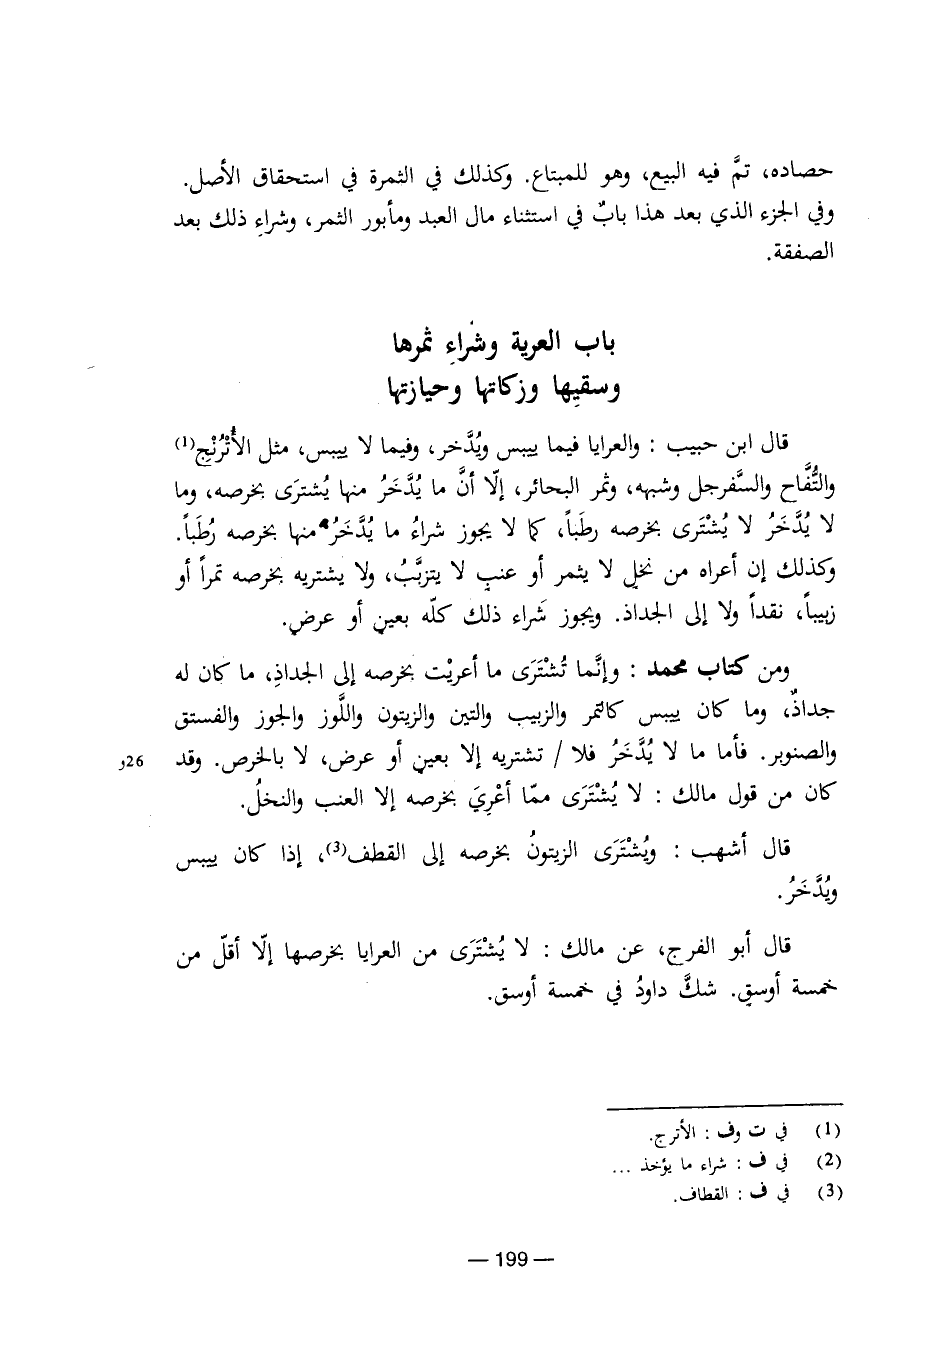 حصاده، تمَّ فيه البيع، وهو للمبتاع. وكذلك في الثمرة في استحقاق الأصل.
وفي الجزء الذي بعد هذا بابٌ في استثناء مال العبد ومأبور الثمر، وشراءِ ذلك بعد
الصفقة.
باب العرية وشراءِ ثمرها
وسقيِها وزكاتها وحيازتها
قال ابن حبيب : والعرايا فيما ييبس ويُدَّخر، وفيما لا ييبس، مثل الأُتْرُنْجِ(1)
والتُّفَّاح والسَّفرجل وشبهه، وثمر البحائر، إلّا أنَّ ما يُدَّخَرُ منها يُشترَى بخرصه، وما
لا يُدَّخَرُ لا يُشْتَرى بخرصه رطَباً، كما لا يجوز شراءُ ما يُدَّخَرُ منها بخرصه رُطَباً.
وكذلك إن أعراه من نخلٍ لا يثمر أو عنبٍ لا يتزبَّبُ، ولا يشتريه بخرصه تمراً أو
زبيباً، نقداً ولا إلى الجداذ. ويجوز شَراء ذلك كلّه بعينٍ أو عرض.
ومن كتاب محمد : وإنَّما تُشْتَرَى ما أعريْت بخرصه إلى الجداذِ، ما كان له
جداذٌ، وما كان ييبس كالتمر والزبيب والتين والزيتون واللَّوز والجوز والفستق
والصنوبر. فأما ما لا يُدَّخَرُ فلا / تشتريه إلا بعينٍ أو عرض، لا بالخرص. وقد 26و
كان من قول مالك : لا يُشْتَرَى ممّا أعْرِيَ بخرصه إلا العنب والنخلُ.
قال أشهب : ويُشْتَرَى الزيتونُ بخرصه إلى القطف(3)، إذا كان ييبس
ويُدَّخَرُ.
قال أبو الفرج، عن مالك : لا يُشْتَرَى من العرايا بخرصها إلّا أقلّ من
خمسة أوسقٍ. شكَّ داودُ في خمسة أوسق.
(1) في ت وف : الأترج.
(2) في ف : شراء ما يؤخذ ...
(3) في ف : القطاف.
— 199 —